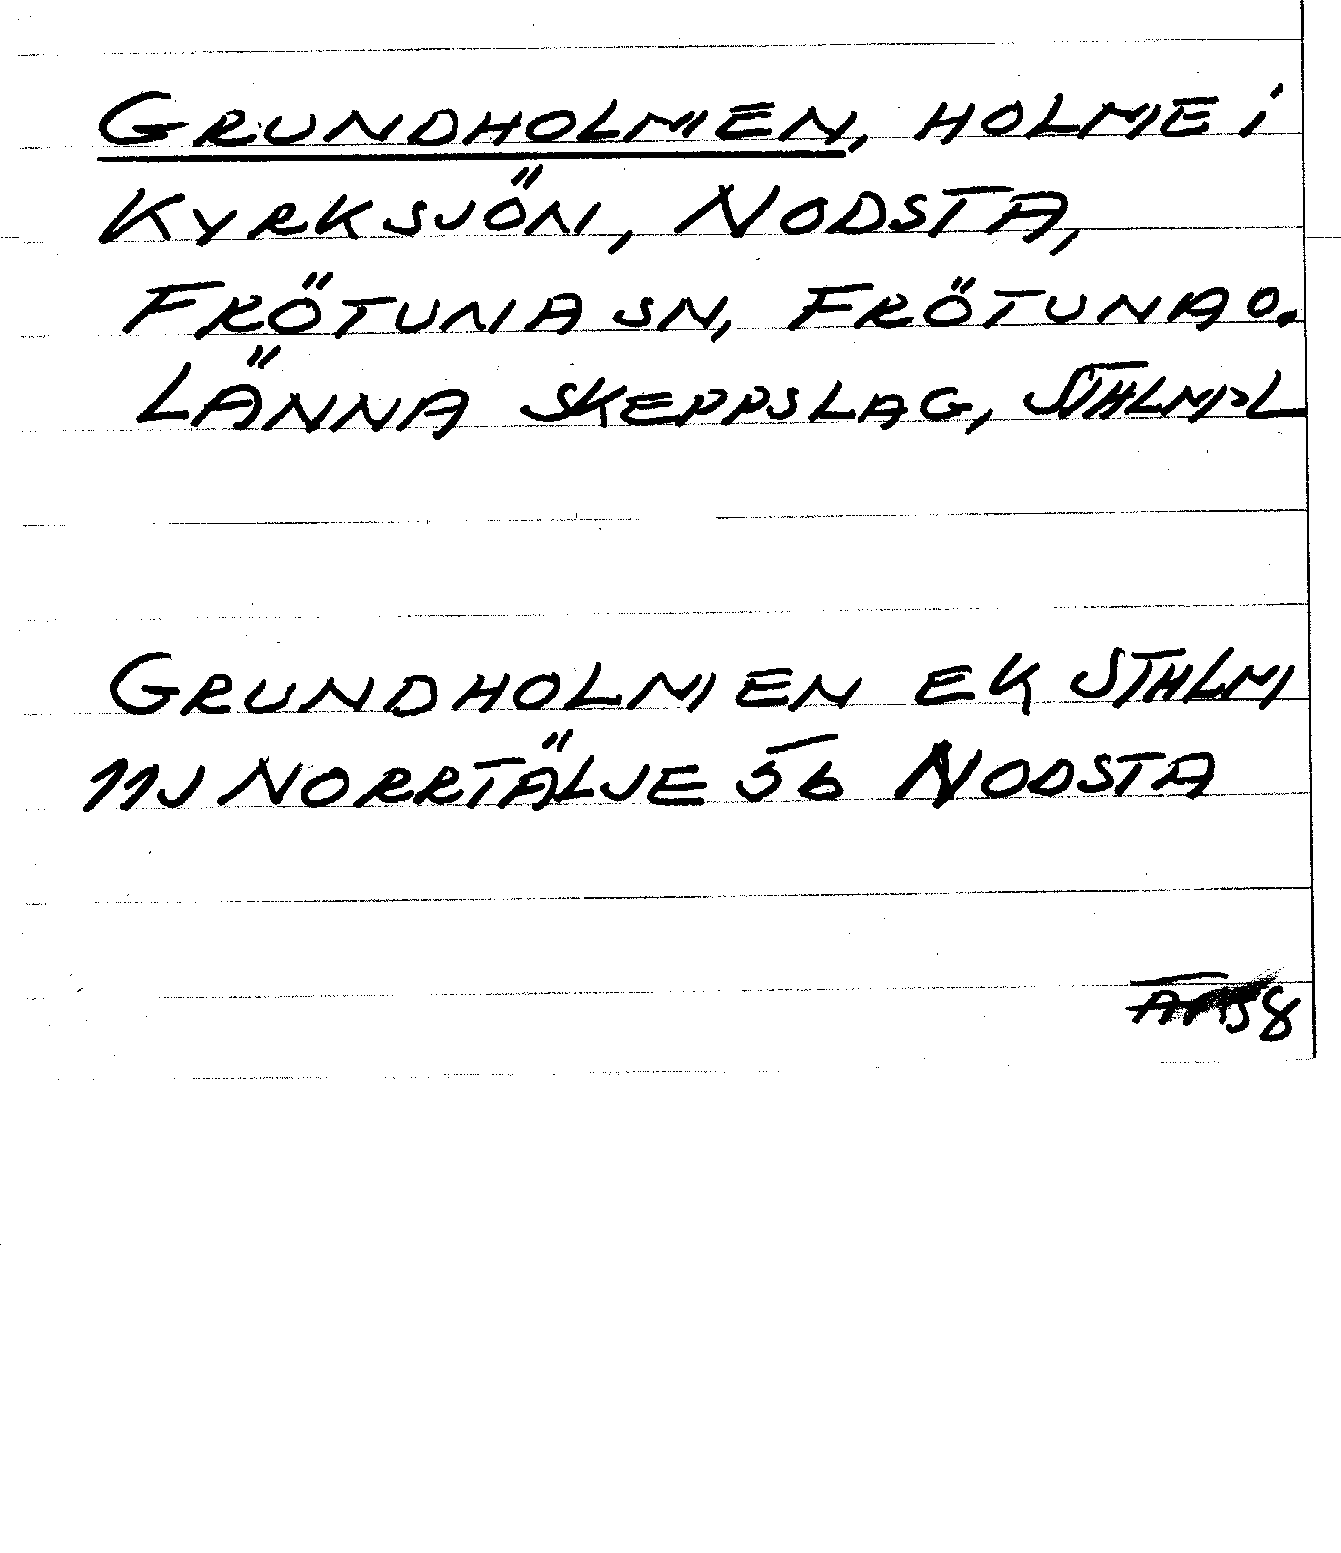 GRUNDHOLMEN, HOLME i
KYRKSJÖN, NODSTA,
FRÖTUNA SN, FRÖTUNA O.
LÄNNA SKEPPSLAG, STHLMSL
GRUNDHOLMEN EK STHLM
11J NORRTÄLJE 56 NODSTA
58